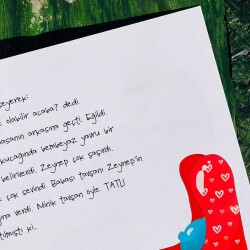 seyerek:
olabilir acaba? dedi.
masanın arkasına geçti. Eğildi.
kucağında bembeyaz yavru bir
belirlendi. Zeynep çok şaşırdı.
çok sevindi. Babası tavşanı Zeynep'in
verdi. Minik tavşan öyle TATLI
tılmıştı ki..